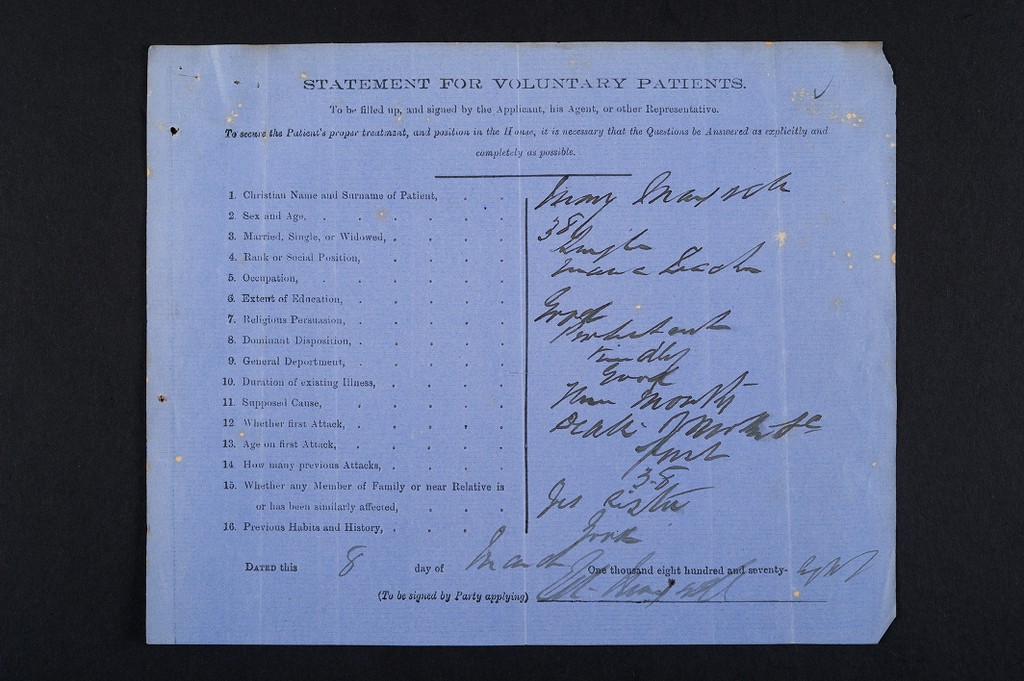 STATEMENT FOR VOLUNTARY PATIENTS.
To be filled up, and signed by the Applicant, his Agent, or other Representative.
To secure the Patient's proper treatment, and position in the House, it is necessary that the Questions be Answered as explicitly and
completely as possible.
1. Christian Name and Surname of Patient, Mary
2. Sex and Age, 38
3. Married, Single, or Widowed, Single
4. Rank or Social Position,
5. Occupation,
6. Extent of Education, Good
7. Religious Persuasion, Protestant
8. Dominant Disposition, Kindly
9. General Deportment, Good
10. Duration of existing Illness, Three Months
11. Supposed Cause, Death of Mother &c
12. Whether first Attack, first
13. Age on first Attack, 38
14. How many previous Attacks,
15. Whether any Member of Family or near Relative is
or has been similarly affected, Yes Sister
16. Previous Habits and History, Good
DATED this 8 day of March One thousand eight hundred and seventy- eight
(To be signed by Party applying)